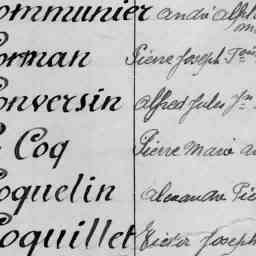 ommunier André Alph
orman Pierre Joseph
onversin Alfred Jules
Coq Pierre Marie
oquelin Alexandre
oquillet Victor Joseph